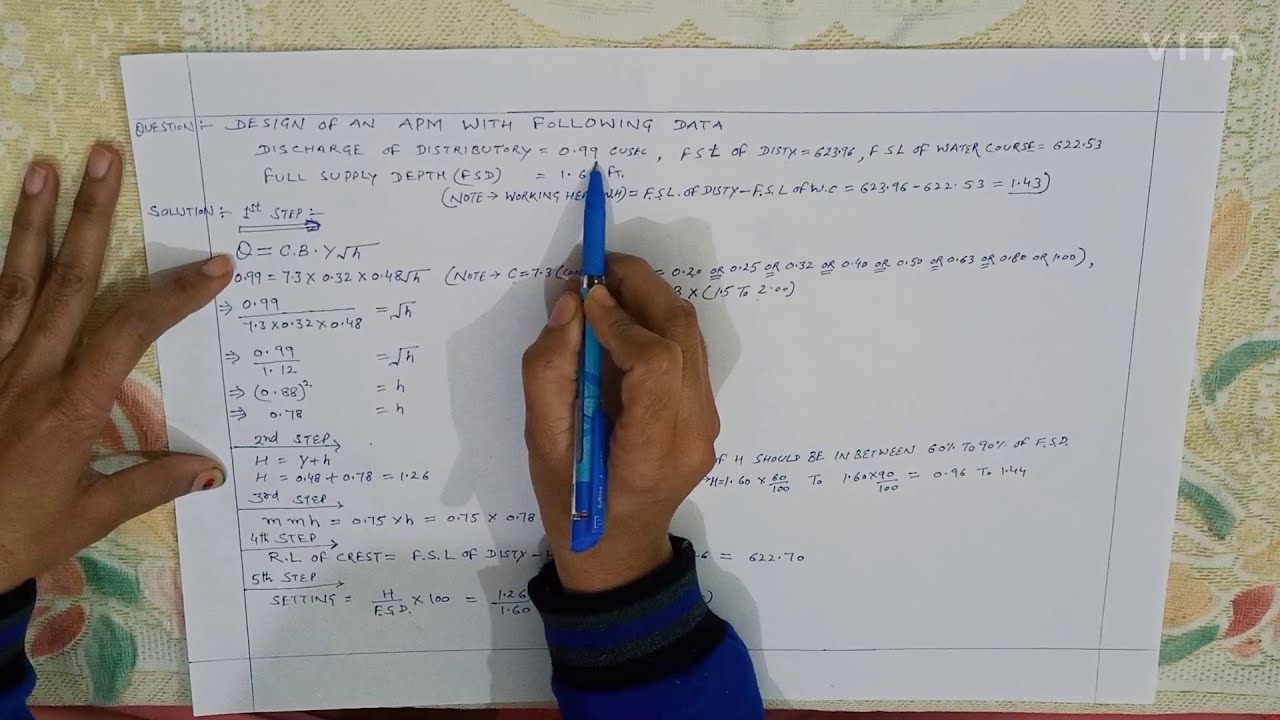 VITA
QUESTION:- DESIGN OF AN APM WITH FOLLOWING DATA
DISCHARGE OF DISTRIBUTORY = 0.99 CUSEC, FSL OF DISTY = 623.96, FSL OF WATER COURSE = 622.53
FULL SUPPLY DEPTH (FSD) = 1.6 FT.
(NOTE → WORKING HE H) = F.S.L. OF DISTY - F.S.L OF W.C = 623.96 - 622.53 = 1.43)
SOLUTION:- 1st STEP:-
Q = C.B.Y√h
0.99 = 7.3 x 0.32 x 0.48√h (NOTE → C = 7.3 (CON = 0.20 OR 0.25 OR 0.32 OR 0.40 OR 0.50 OR 0.63 OR 0.80 OR 1.00),
⇒ 0.99 / 7.3 x 0.32 x 0.48 = √h 3 x (1.5 TO 2.00)
⇒ 0.99 / 1.12 = √h
⇒ (0.88)² = h
⇒ 0.78 = h
2nd STEP
H = Y+h OF H SHOULD BE IN BETWEEN 60% TO 90% OF F.S.D.
H = 0.48 + 0.78 = 1.26 H = 1.60 x 60/100 TO 1.60 x 90/100 = 0.96 TO 1.44
3rd STEP
m m h = 0.75 x h = 0.75 x 0.78
4th STEP
R.L OF CREST = F.S.L OF DISTY - H 6 = 622.70
5th STEP
SETTING = H / F.S.D. x 100 = 1.26 / 1.60